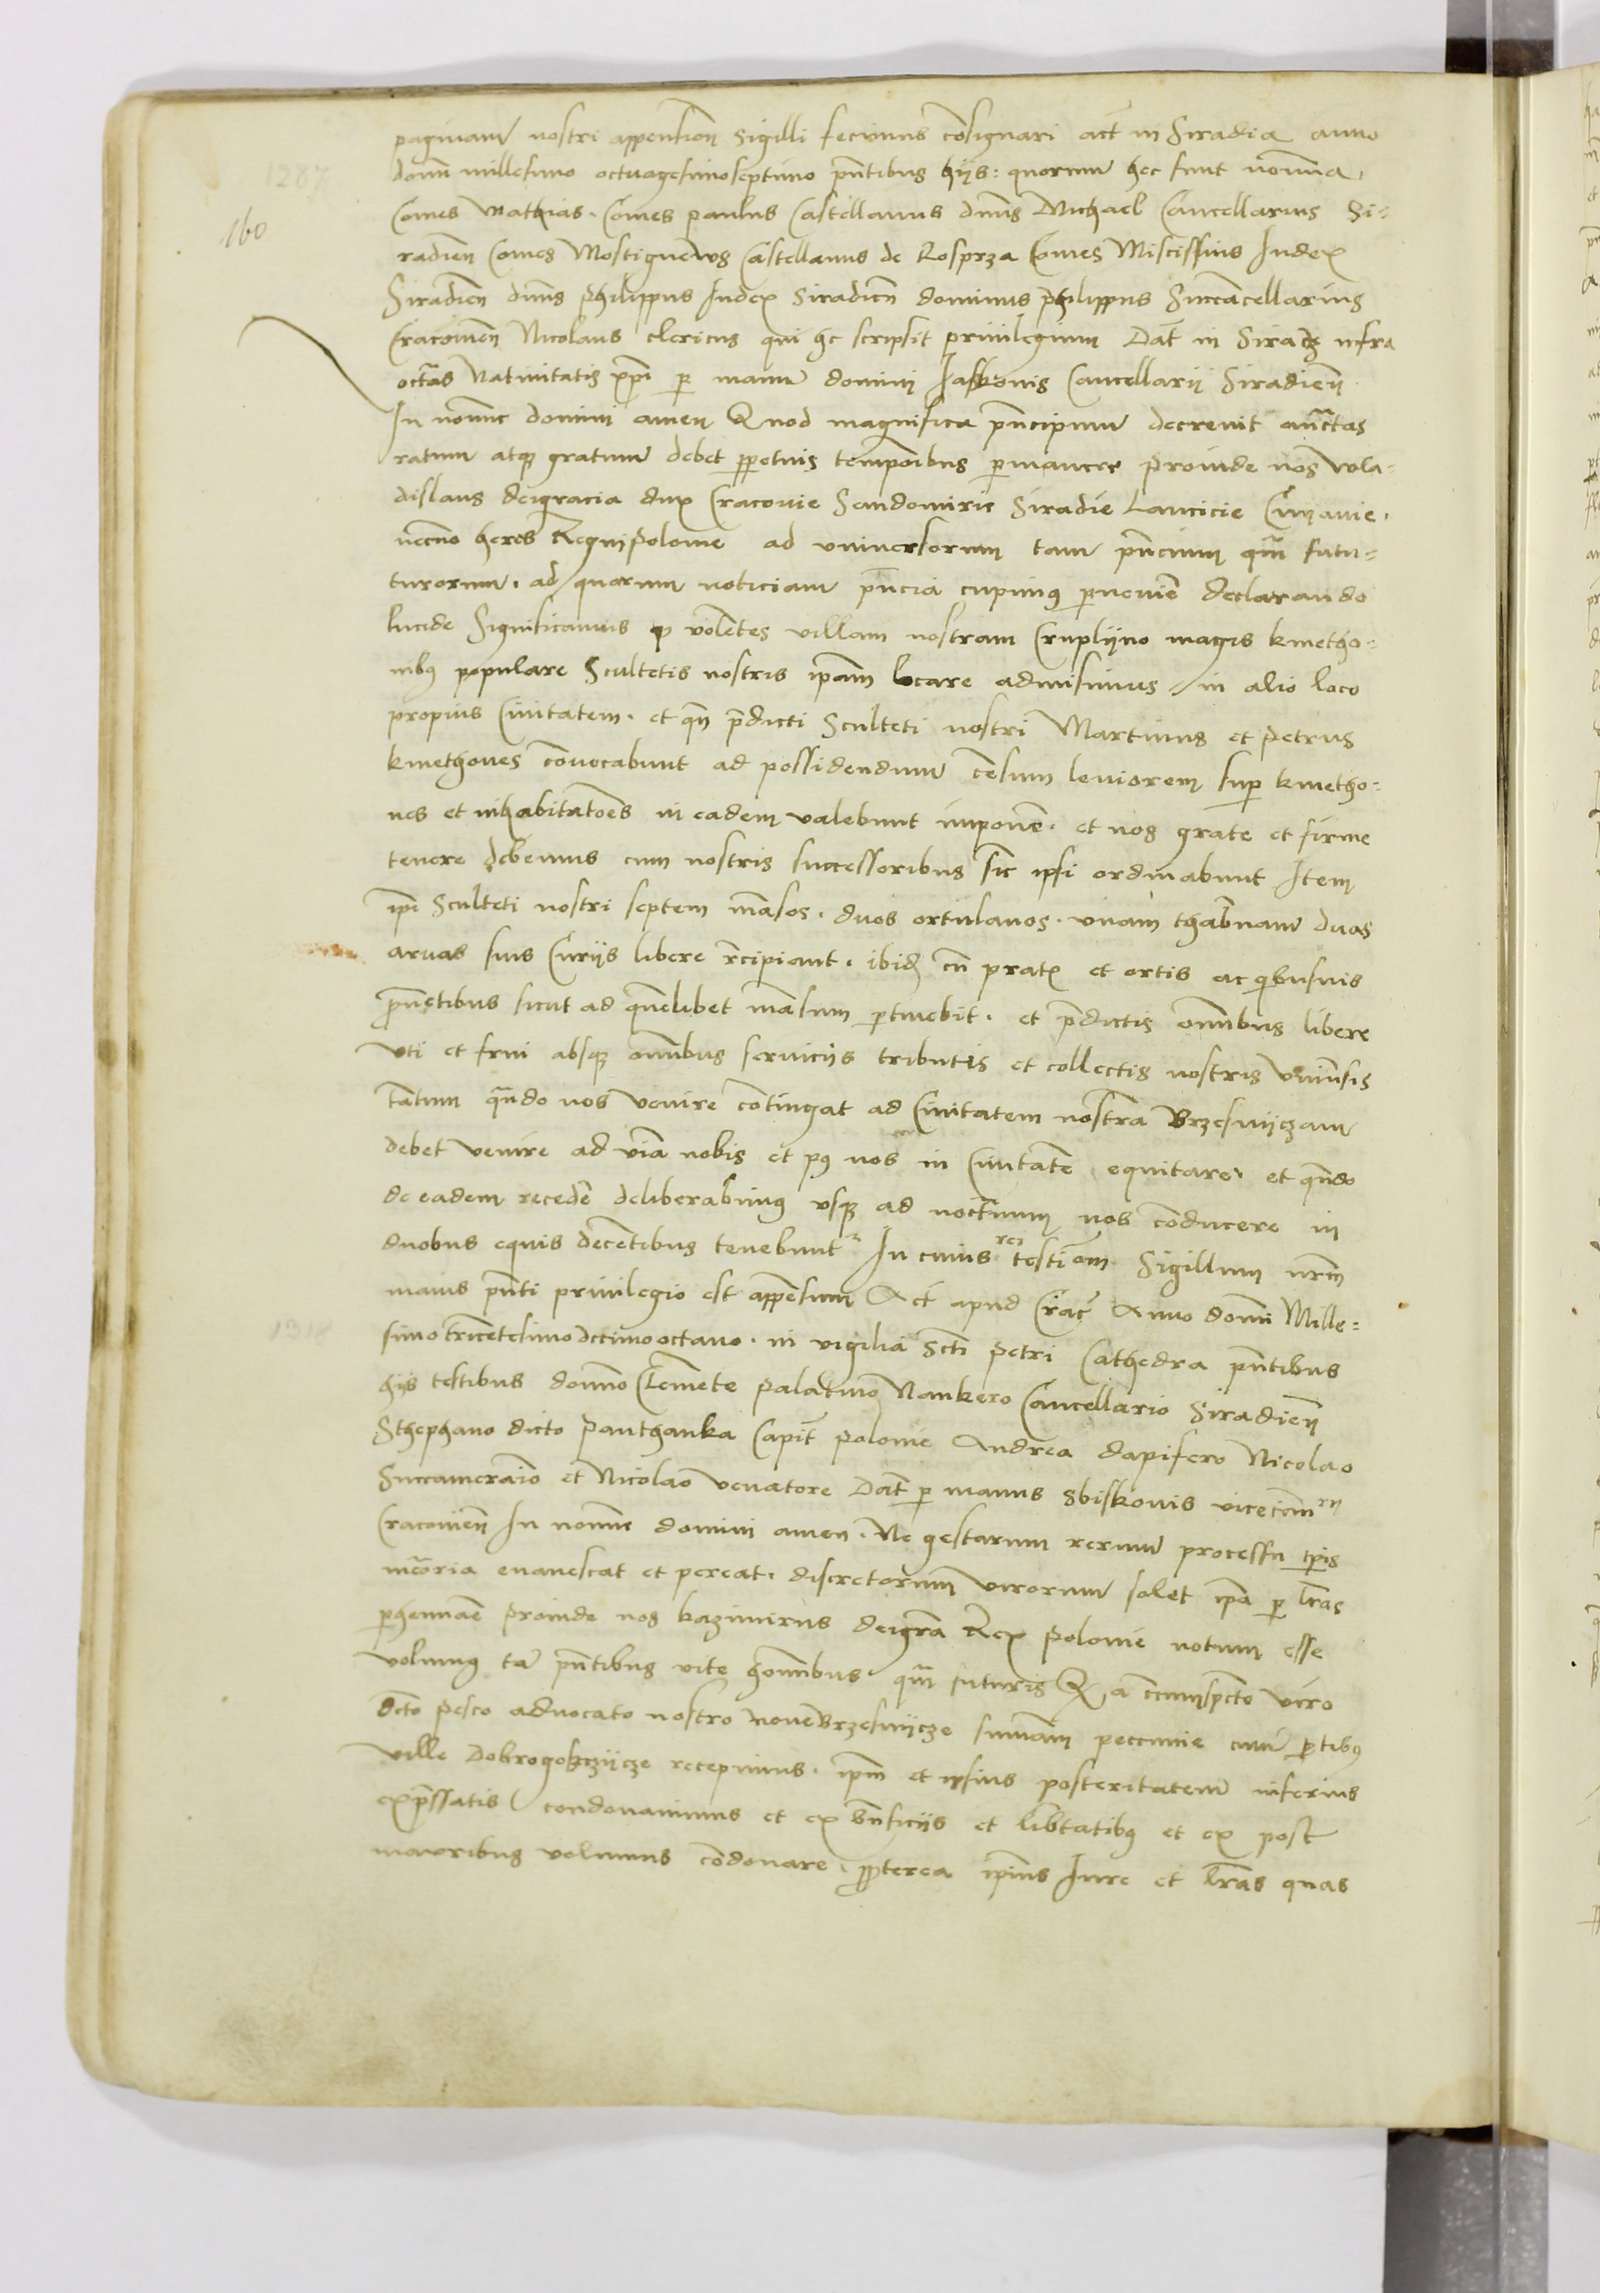 paginam nostri appension̄ sigilli fecimus cōsignari act̄ in Siradia anno
1287
domī millesimo octuagesimoseptimo pn̄tibus hijs: quorum hec sunt nomīa.
160
Comes Mathias. Comes paulus Castellanus dn̄us Michael Cancellarius Si-
radien̄ Comes Mostignewus Castellanus de Rosprza Comes Miscissius Iudex
Siradien̄ dn̄us philippus Iudex Siradien̄ dominus philippus Succācellarius
Cracovien̄ Nicolaus clericus qui hc̄ scripsit privilegium Dat̄ in infra
octās Natiuitatis xp̄i p manū dominj Iaskonis Cancellarij Siradien̄
In noīe domini amen Quod magnifica pn̄cipum decrevit auctas
ratum atq̄ gratum debet ꝑpetuis temporibus ꝑmanere proinde nos Vla-
dislaus deigracia dux Cracovie Sandomirie Siradie Lancicie Cuijavie.
necno heres Regnipolonie ad universorum tam pn̄cium qm̄ futu-
turorum. ad quorum noticiam pn̄cia cupimus ꝑuenire declarando
lucide significamus ꝙ volētes villam nostram Cruplijno magis kmetho-
nibꝰ populare Scultetis nostris ip̄am locare admisimus in alio loco
propius Ciuitatem. et qn̄ p̄dicti Sculteti nostri Martinus et petrus
kmethones cōuocabunt ad possidendum cēsum leuiorem sup kmetho-
nes et inhabitatōes in eadem valebunt imponēr. et nos grate et firme
tenere debemus cum nostris successoribus sic ipsi ordinabunt Item
ip̄i Sculteti nostri septem māsos. duos ortulanos. unam thab̄nam duas
areas suis Curijs libere recipiant. ibidē cū prat et ortis ac qbusuis
ꝓuētibus sicut ad quēlibet māsum ꝑtinebit. et p̄dictis om̄ibus libere
vti et frui absq̄ om̄ibus servicijs tributis et collectis nostris Vniūsis
tātum quādo nos venire cōtingat ad Ciuitatem nostrā Brzesnijczam
debet venire ad viā nobis et pꝰ nos in Ciuitatē equitare. et quādo
de eadem recedē deliberabimus vsq̄ ad nocturnum nos cōducere in
duobus equis decētibus tenebunt In cuius rei testiōm Sigillum nr̄m
maius pn̄ti privilegio est appēsum Act̄ apud Crac̄ Anno domī Mille-
1318
simo tricētesimo decimooctauo. in vigilia Scti petri Cathedra pn̄tibus
hijs testibus domīo Clemēte palatino Nankero Cancellario Siradien̄
Sthephano dicto panthanka Capit̄ polonie Andrea dapifero Nicolao
Succamerario et Nicolao venatore Dat̄ p manus Sbiskonis
Cracovien̄ In nomīe domini amen. Ne gestarum rerum processu tp̄is
memōria evanescat et pereat. discretorum virorum solet ip̄a p lr̄as
ꝑhennaē proinde nos kazimirus deigrā Rex polonie notum esse
volumus tā pn̄tibus vite hom̄ibus qm̄ futuris Q a circūspēcto viro
dcto pesco advocato nostro noueBrzesnijcze sum̄am peccunie cum ꝑtibꝰ
ville Dobrogosczijcze recepimus. ip̄m et ipsius posteritatem inferius
exp̄ssatis condonauimus et ex bn̄ficijs et lib̄tatibꝰ et ex post
maioribus volumus cōdonare. ꝓpterea ip̄ius Iure et lr̄as quas